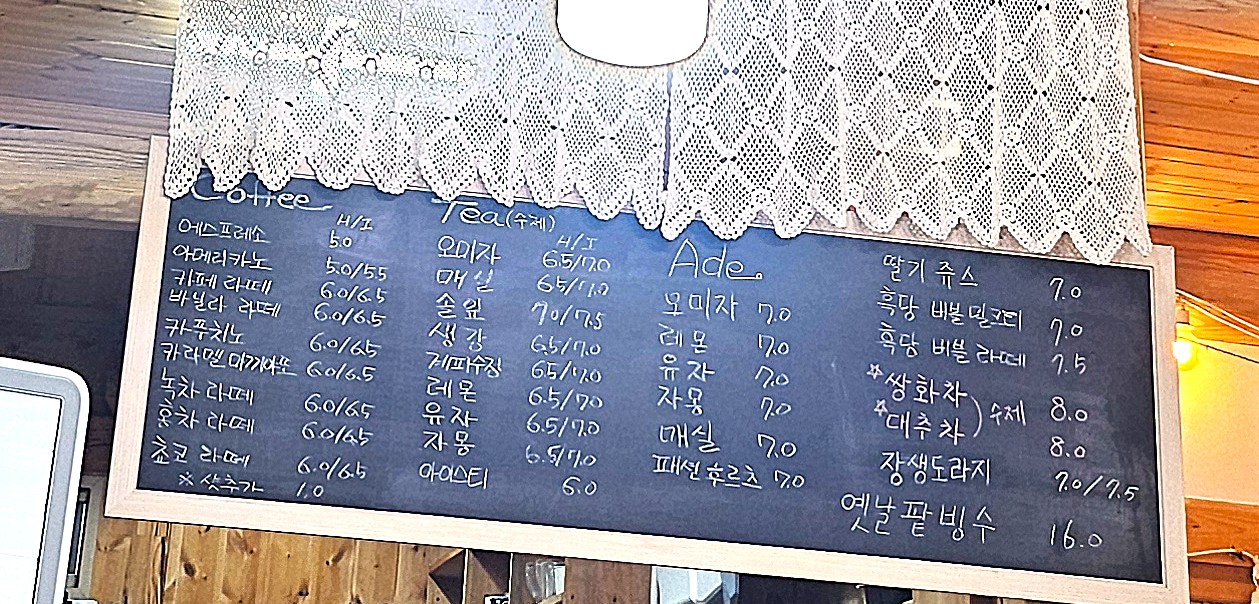 Coffee
H/I
에스프레소 5.0
아메리카노 5.0/5.5
카페 라떼 6.0/6.5
바닐라 라떼 6.0/6.5
카푸치노 6.0/6.5
카라멜 마끼아또 6.0/6.5
녹차 라떼 6.0/6.5
홍차 라떼 6.0/6.5
초코 라떼 6.0/6.5
※ 샷추가 1.0
Tea (수제)
H/I
오미자 6.5/7.0
매실 6.5/7.0
솔잎 7.0/7.5
생강 6.5/7.0
계피수정 6.5/7.0
레몬 6.5/7.0
유자 6.5/7.0
자몽 6.5/7.0
아이스티 6.0
Ade.
오미자 7.0
레몬 7.0
유자 7.0
자몽 7.0
매실 7.0
패션후르츠 7.0
딸기 쥬스 7.0
흑당 버블 밀크티 7.0
흑당 버블 라떼 7.5
☆쌍화차 ) 수제 8.0
☆대추차 8.0
장생도라지 7.0/7.5
옛날 팥빙수 16.0